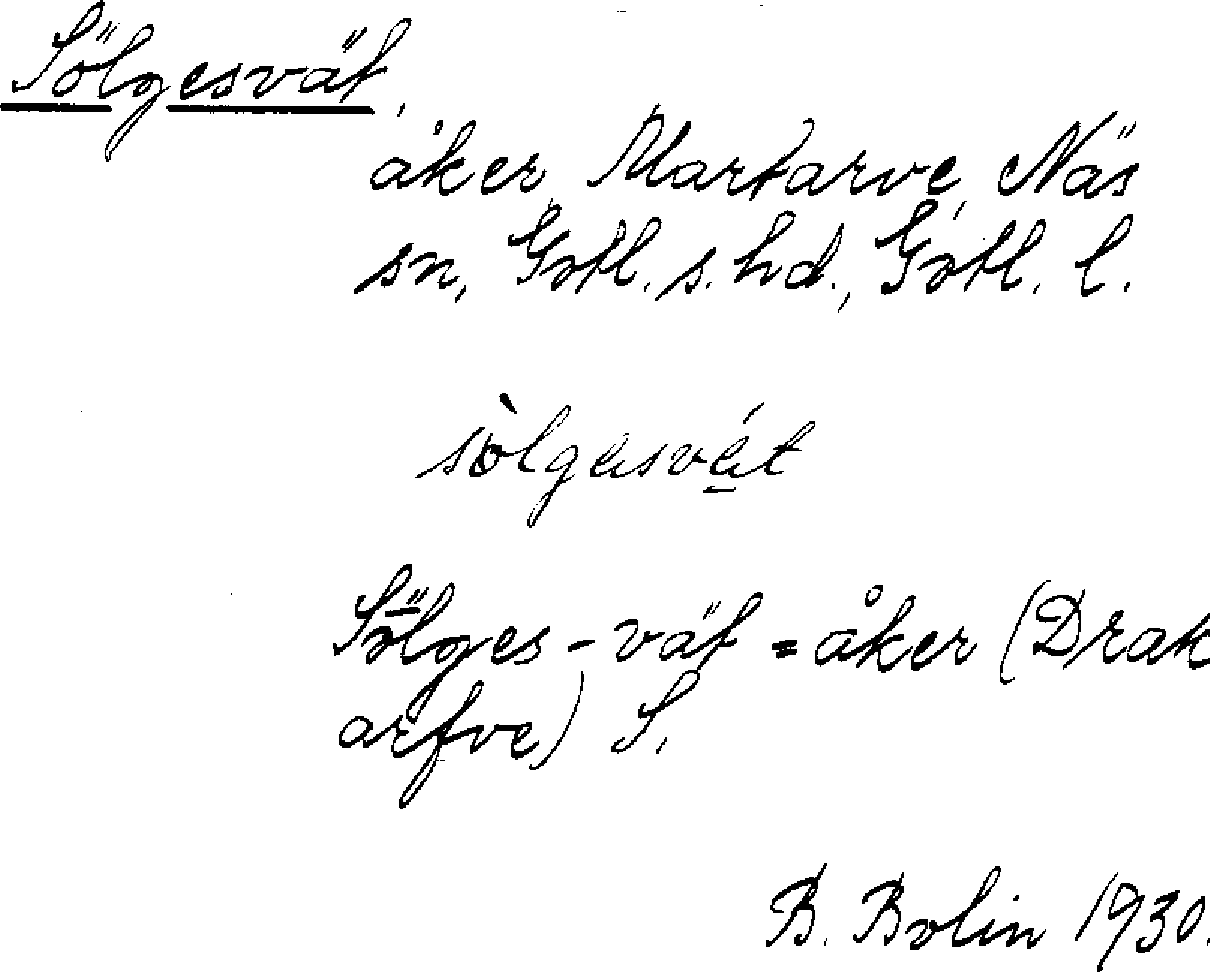 Sölgesvät,
åker, Martarve, Näs
sn, Gotl. s. hd., Gotl. l.
sòlgɑsvɑ́t
Sölges-vät = åker (Drak
arfve) S.
B. Bolin 1930.